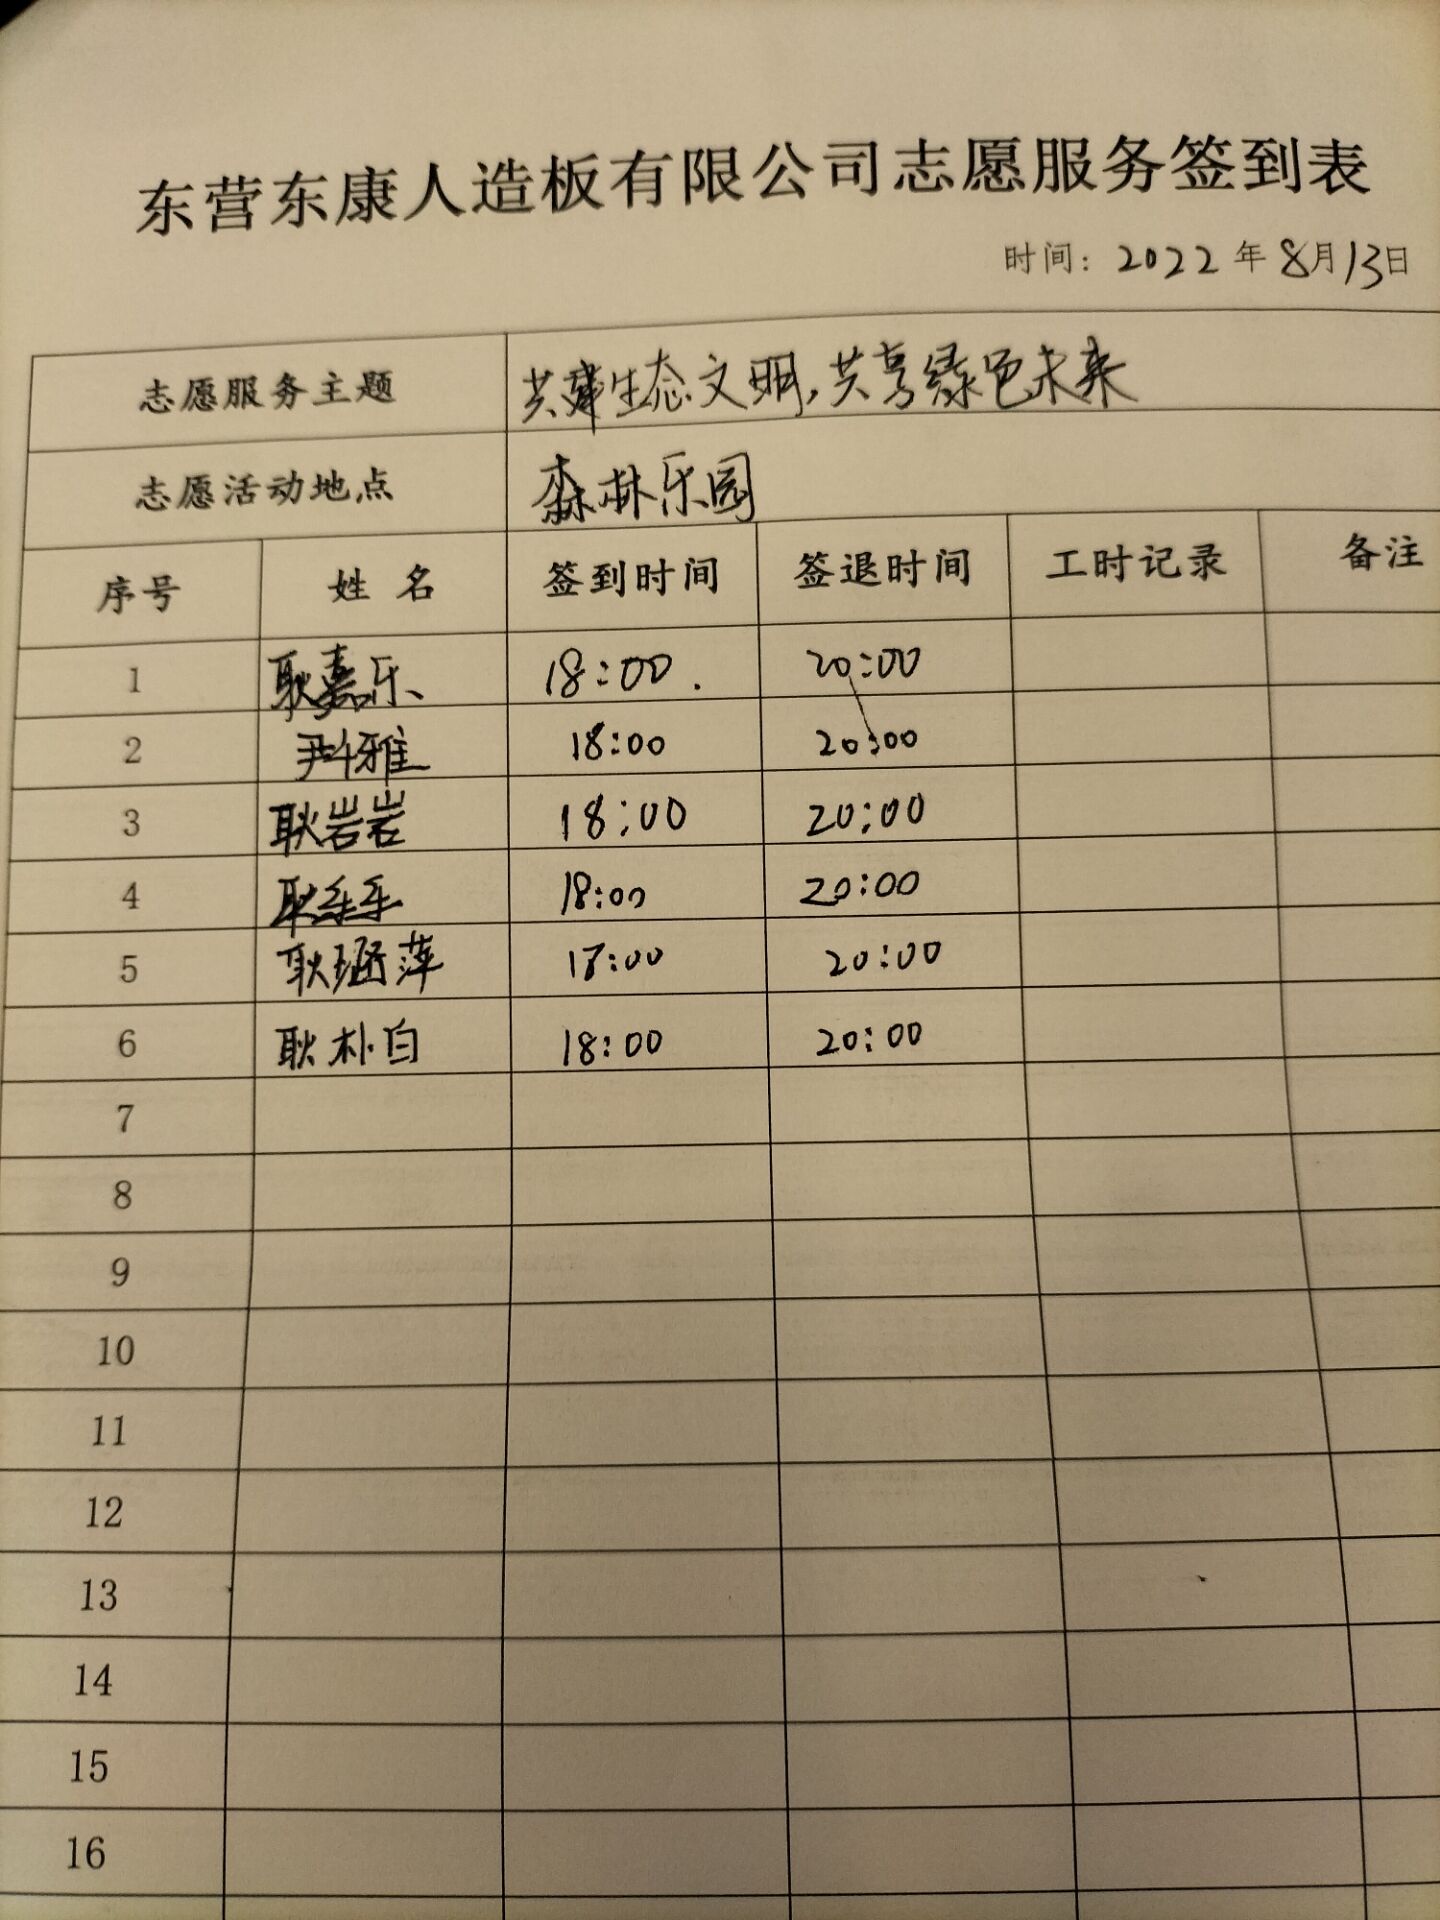 东营东康人造板有限公司志愿服务签到表
时间：2022年8月13日
志愿服务主题 共建生态文明，共享绿色未来
志愿活动地点 森林乐园
序号 姓名 签到时间 签退时间 工时记录 备注
1 耿嘉乐 18:00. 20:00
2 18:00 20:00
3 耿岩岩 18:00 20:00
4 18:00 20:00
5 耿涵萍 18:00 20:00
6 耿朴白 18:00 20:00
7
8
9
10
11
12
13
14
15
16